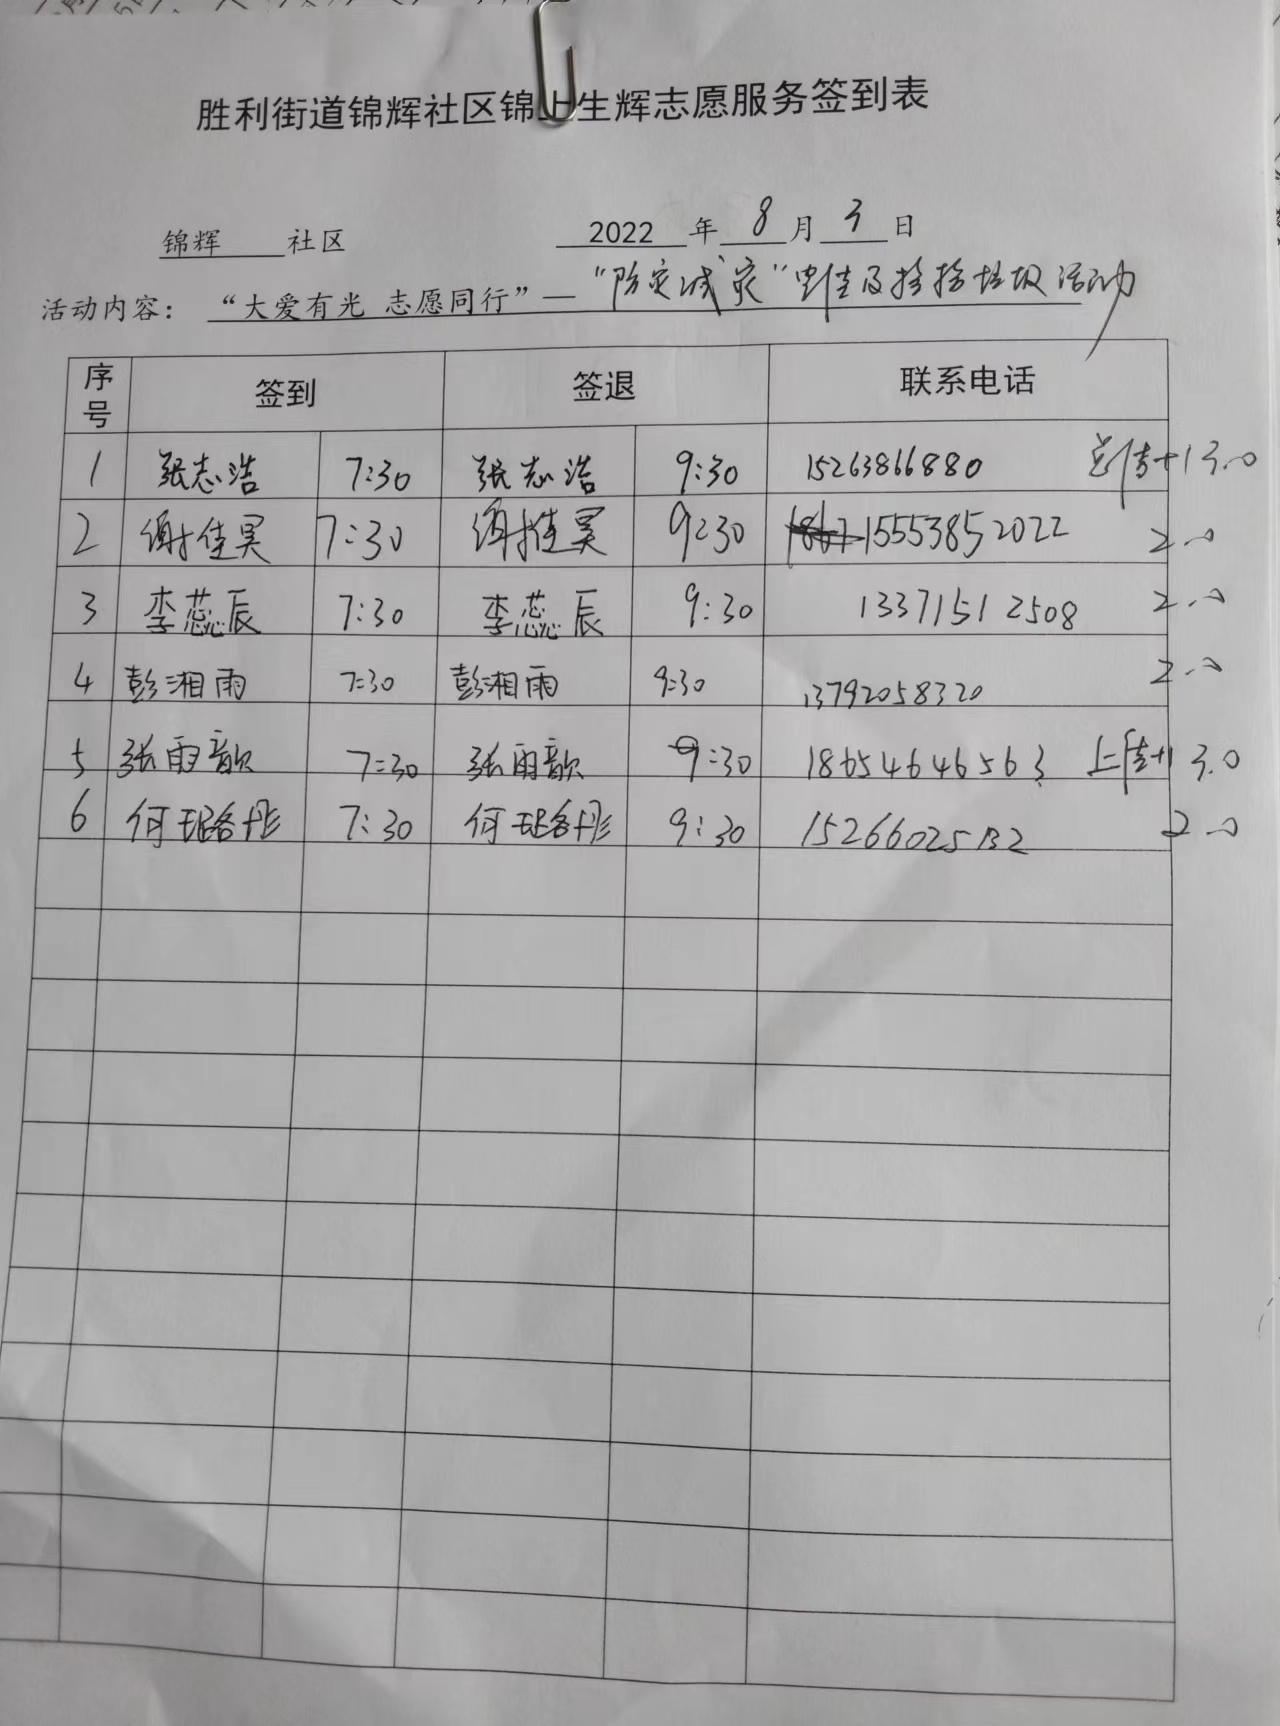 胜利街道锦辉社区锦上生辉志愿服务签到表
锦辉 社区 2022 年 8 月 3 日
活动内容： “大爱有光 志愿同行”— “防灾减灾”宣传及捡拾垃圾活动
序号 签到 签退 联系电话
1 张志浩 7:30 张志浩 9:30 15263866880 宣传+1 3.0
2 谢佳昊 7:30 谢佳昊 9:30 15553852022 2.0
3 李蕊辰 7:30 李蕊辰 9:30 13371512508 2.0
4 彭湘雨 7:30 彭湘雨 9:30 13792058320 2.0
5 张雨歆 7:30 张雨歆 9:30 18654646563 上传+1 3.0
6 何 7:30 何 9:30 15266025132 2.0